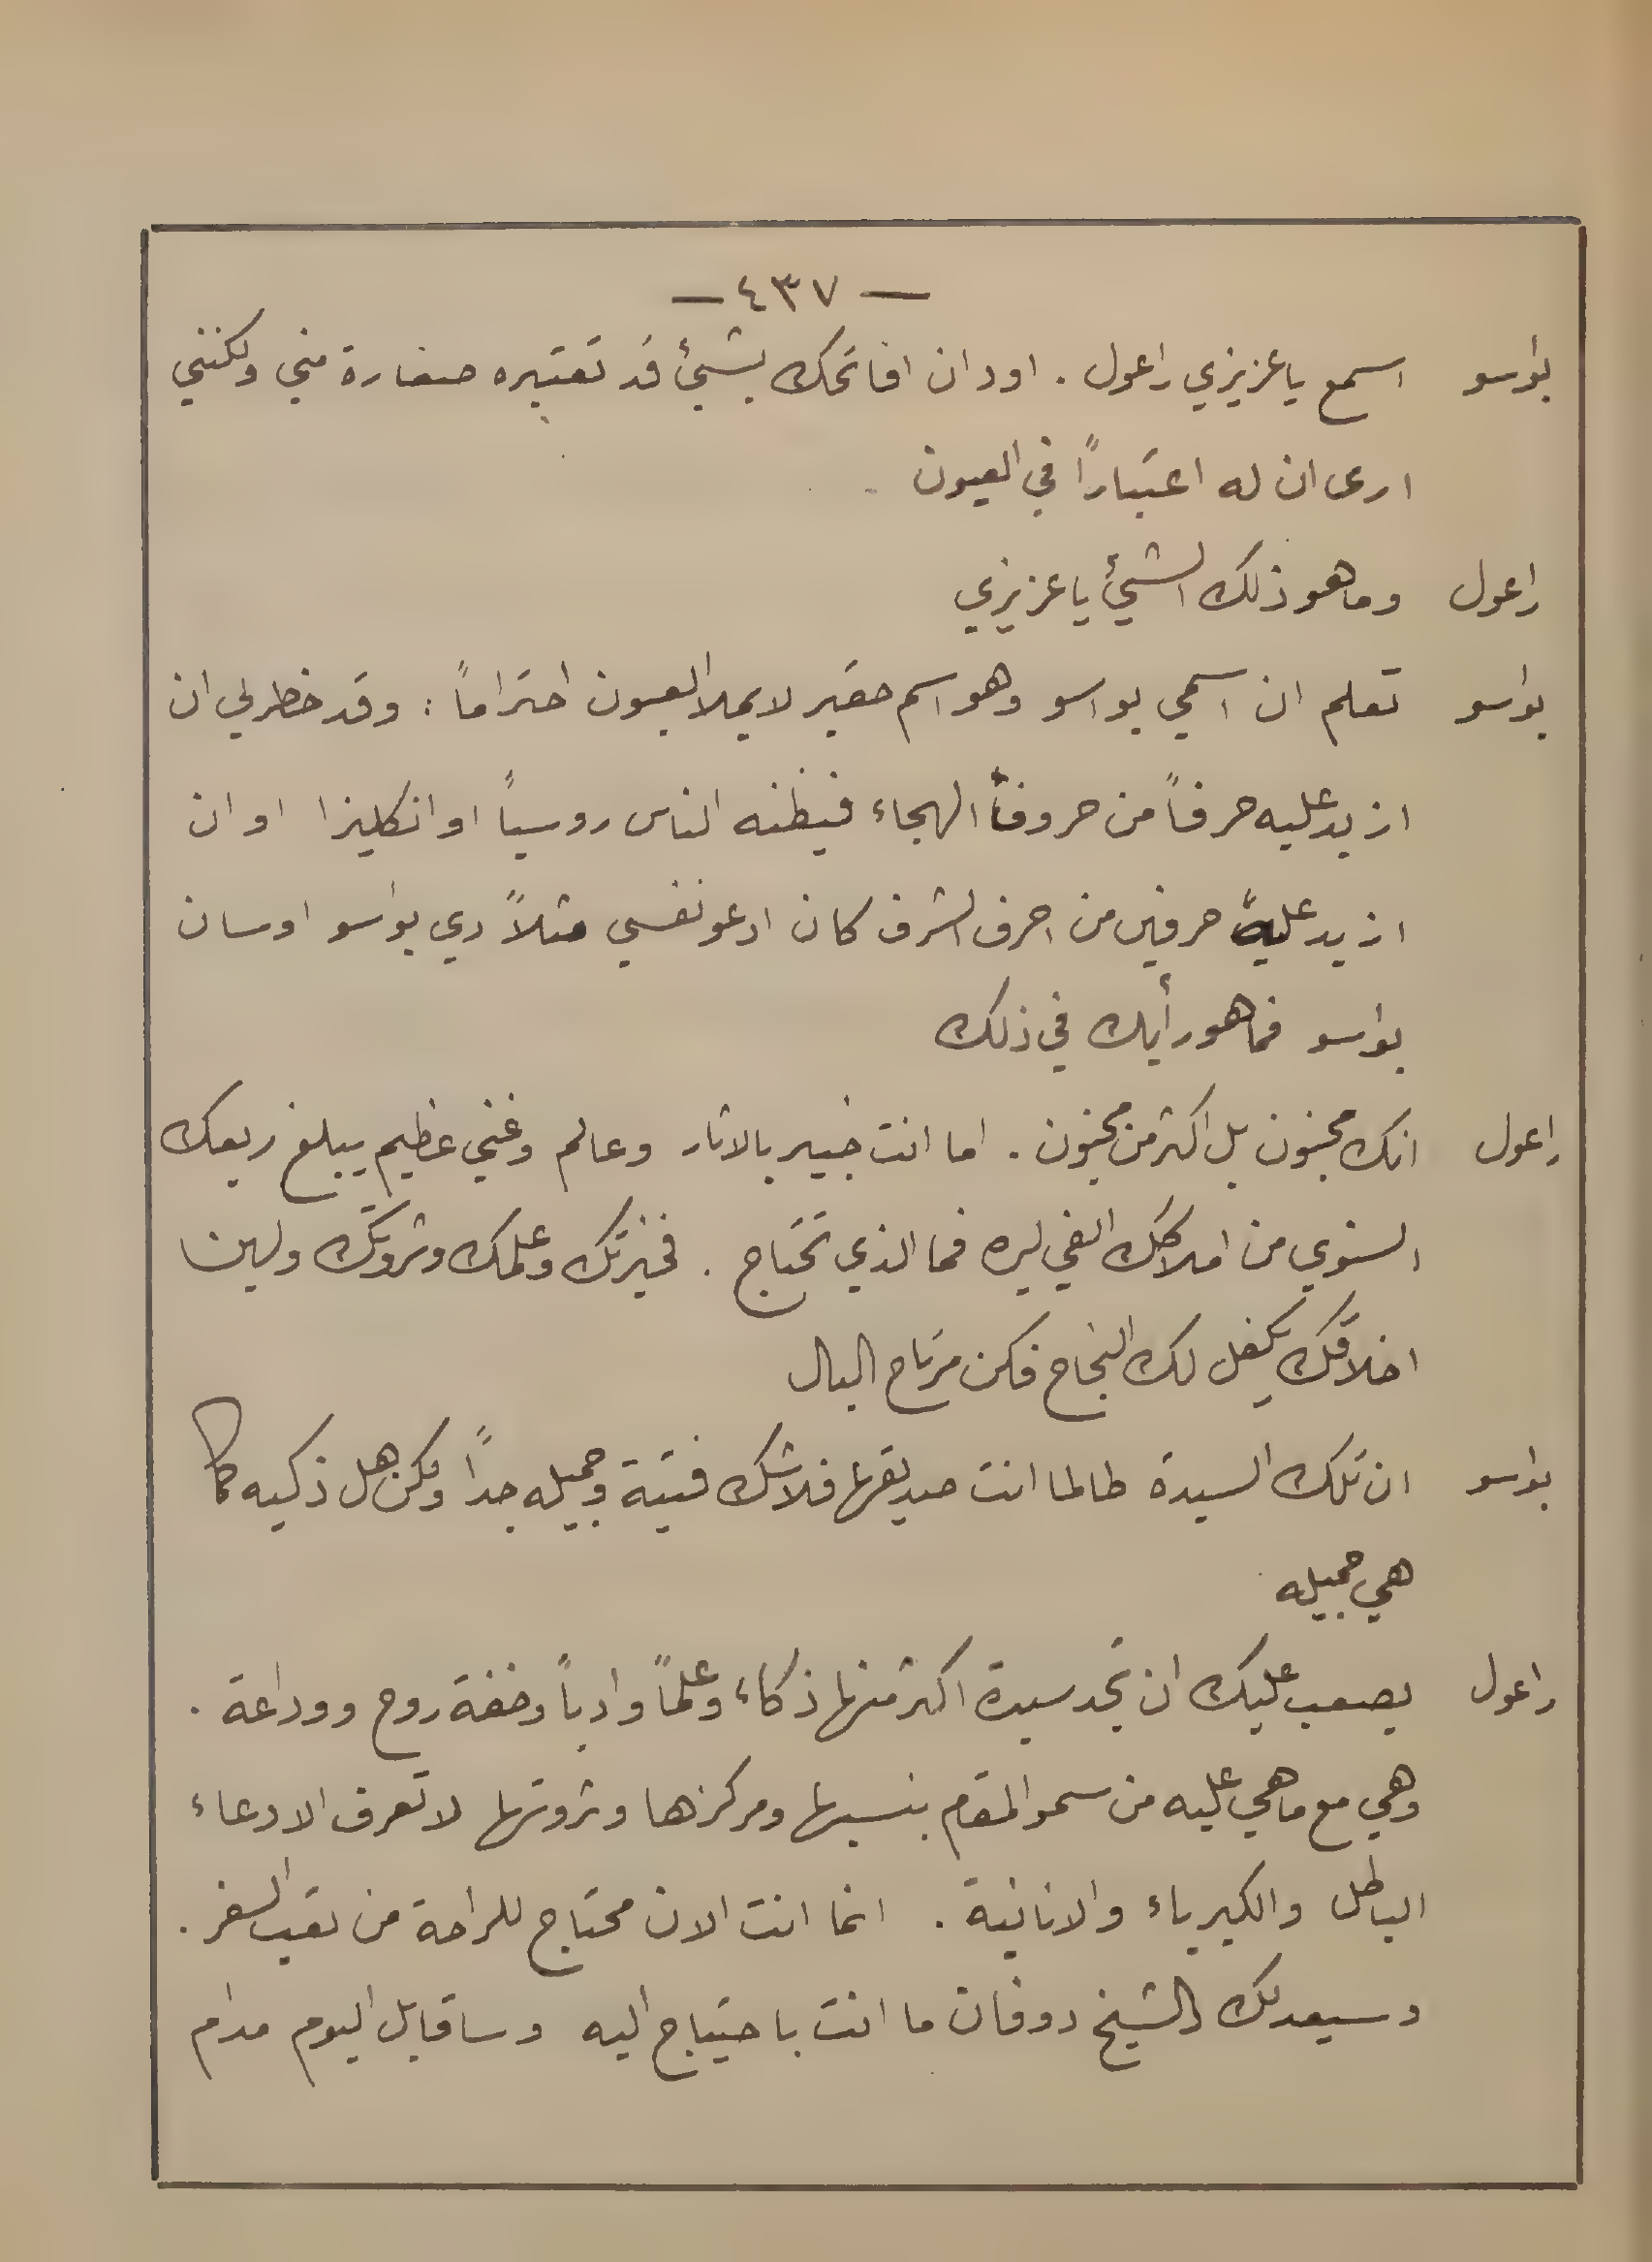 — ٤٣٧ —
بواسو اسمع يا عزيزي راعول . اود ان افاتحك بشيئ قد تعتبره صغارة مني ولكنني
ارى ان له اعتباراً في العيون
راعول وما هو ذلك الشيئ يا عزيزي
بواسو تعلم ان اسمي بواسو وهو اسم حقير لا يملا العيون احتراماً : وقد خطر لي ان
ازيد عليه حرفاً من حروف الهجاء فيظنه الناس روسياً او انكليزا او ان
ازيد عليه حرفين من احرف الشرف كان ادعو نفسي مثلاً دي بواسو او سان
بواسو فما هو رأيك في ذلك
راعول انك مجنون بل اكثر من مجنون . اما انت خبير بالاثار وعالم وغني عظيم يبلغ ريعك
السنوي من املاكك الفي ليره فما الذي تحتاج . فخبرتك وعلمك وثروتك ولين
اخلاقك يكفل لك النجاح فكن مرتاح البال
بواسو ان تلك السيدة طالما انت صديقها فلا شك فتية وجميله جداً ولكن هل ذكيه كما
هي جميله
راعول يصعب عليك ان تجد سيدة اكثر منها ذكاء وعلماً وادباً وخفة روح ووداعة .
وهي مع ما هي عليه من سمو المقام بنسبها ومركزها وثروتها لا تعرف الادعاء
الباطل والكبرياء والانانية . انما انت الان محتاج للراحة من تعب السفر .
وسيعد لك الشيخ دوفان ما انت باحتياج اليه وساقابل اليوم مدام